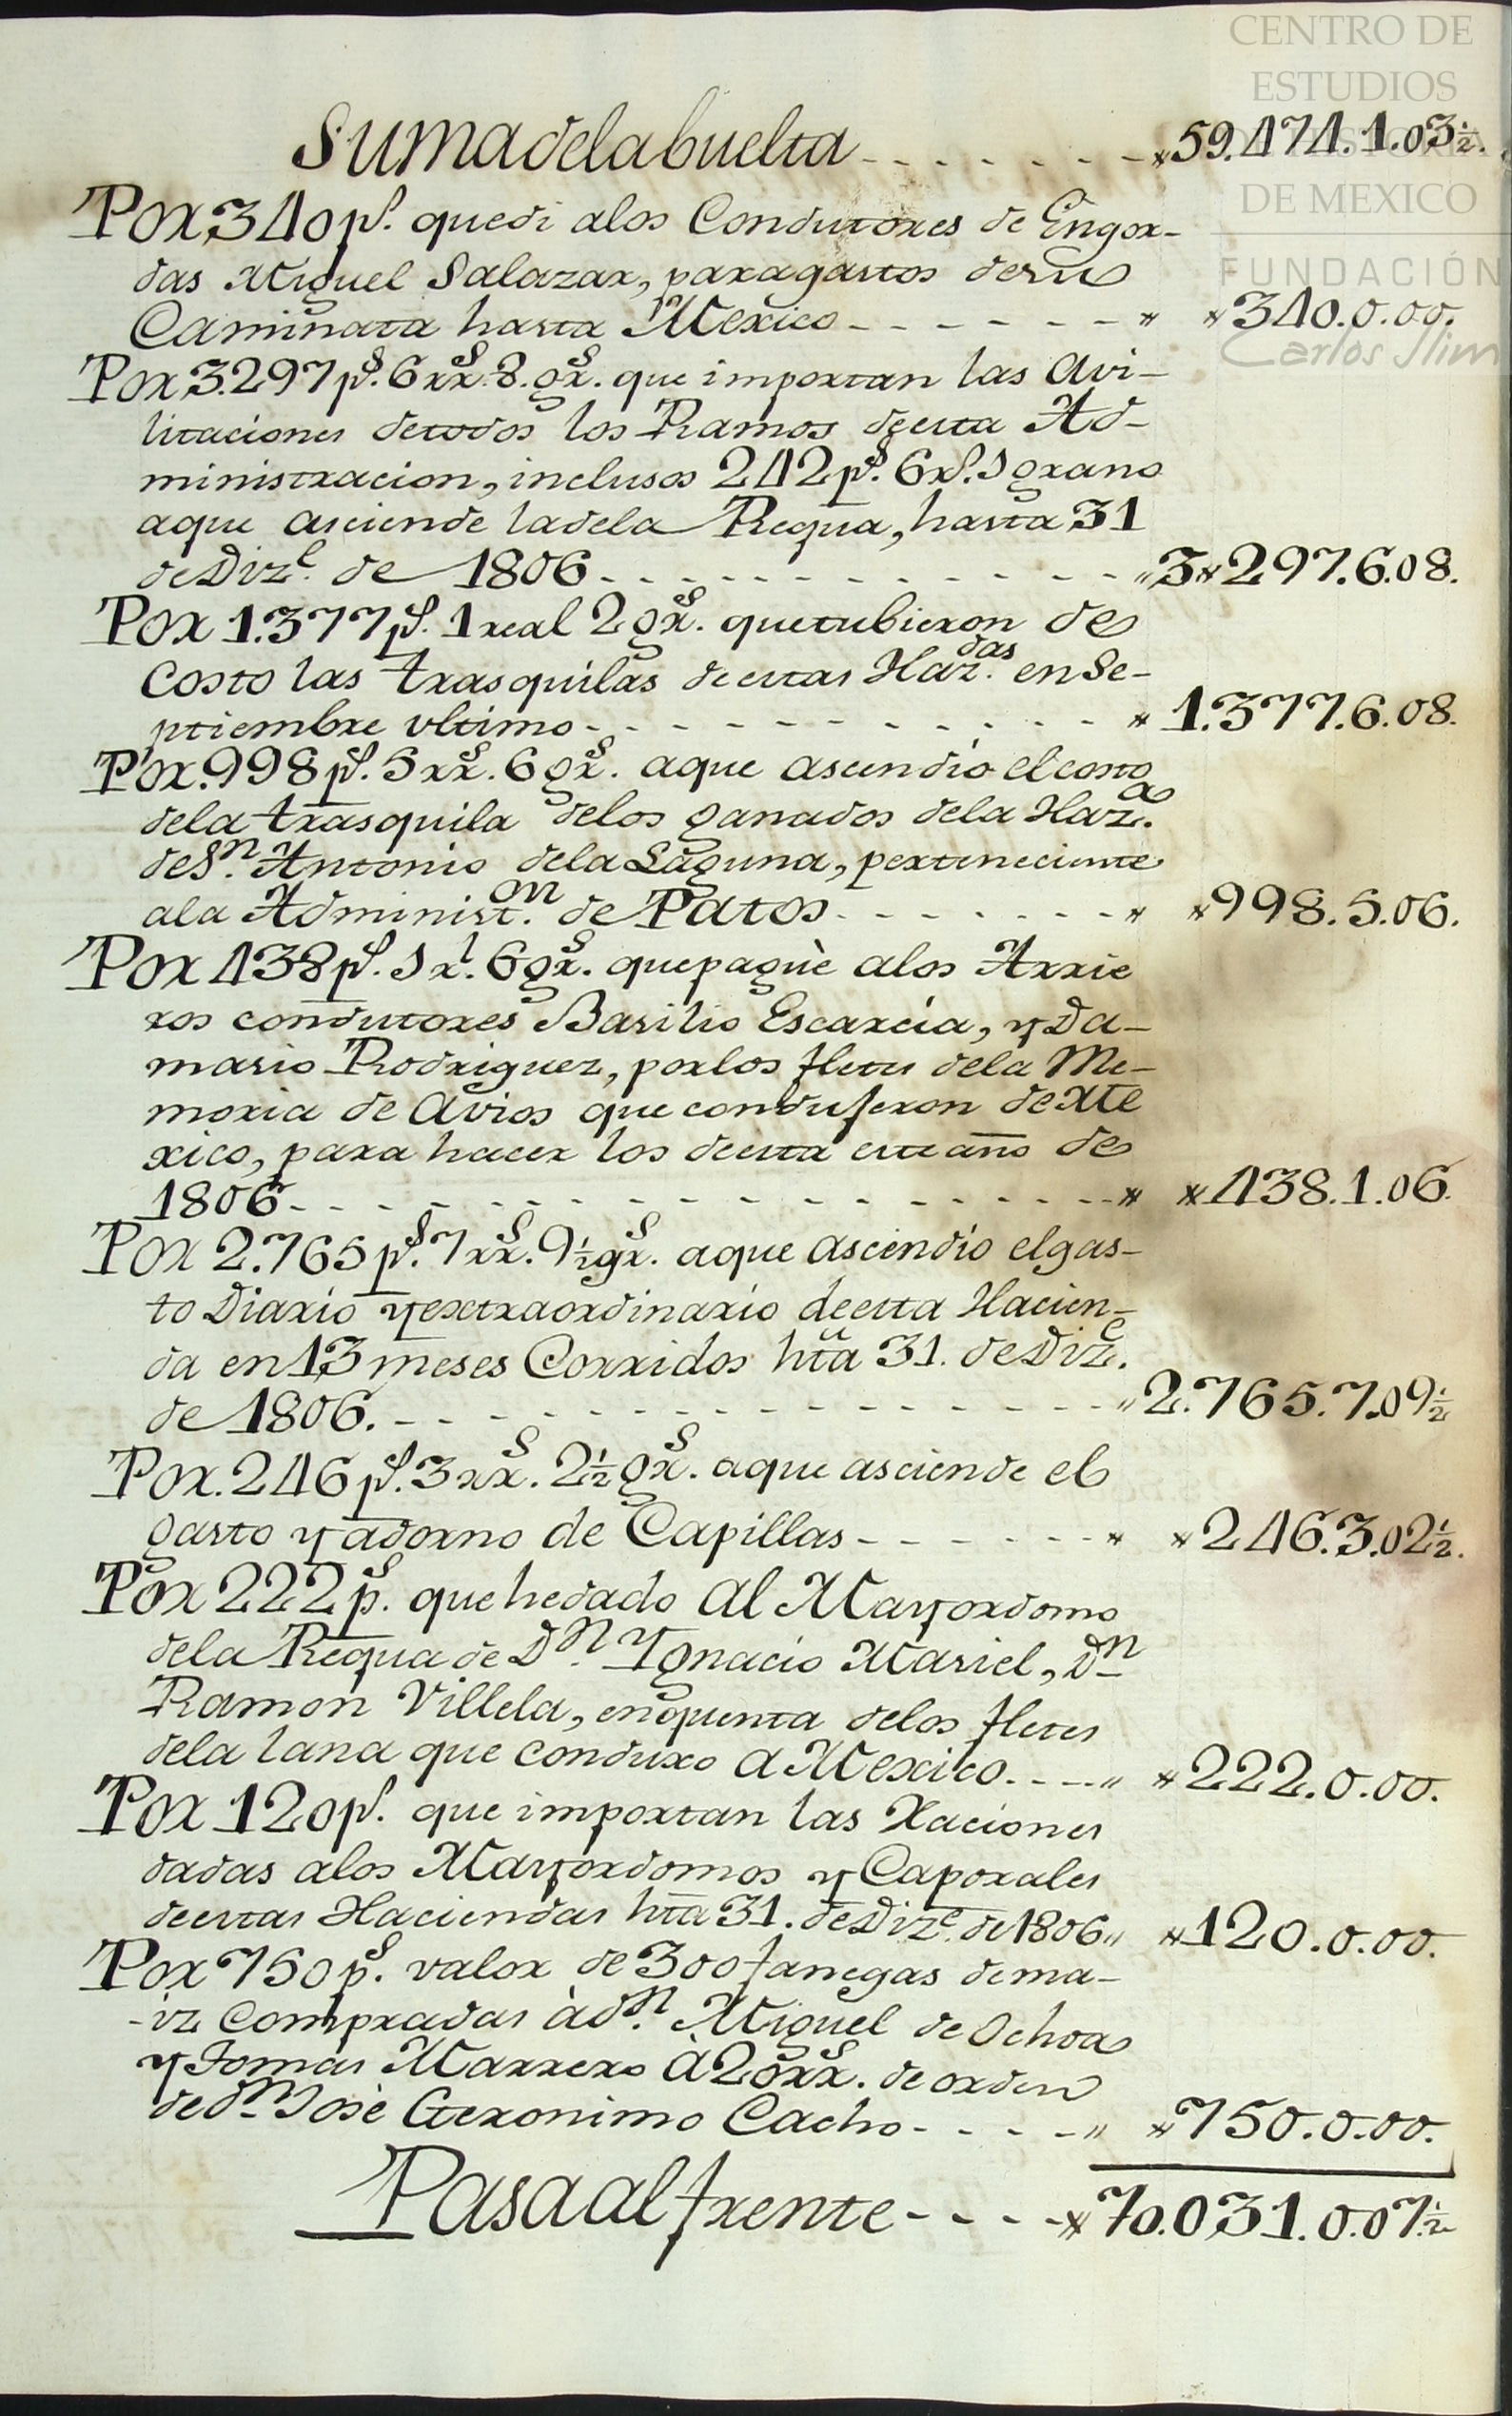 CENTRO DE
ESTUDIOS
DE HISTORIA
DE MEXICO
FUNDACIÓN
Carlos Slim
Suma dela buelta - - - - - - - 59.474.1.03½.
Por 340 p.s que di alos Condutores de Engor-
das Miguel Salazar, para gastos de su
Caminata hasta Mexico - - - - - - - 340.0.00.
Por 3.297 p.s 6 rr.s 8. gr.s que importan las Avi-
litaciones de todos los Ramos de esta Ad-
ministracion, inclusos 242 p.s 6 r.s 1 grano
aque asciende la dela Requa, hasta 31
de Diz.e de 1806 - - - - - - - - - - - - 3.297.6.08.
Por 1.377 p.s 1 real 2 gr.s que tubieron de
Costo las trasquilas de estas Haz.das en Se-
ptiembre ultimo - - - - - - - - - - - - 1.377.6.08.
Por 998 p.s 5 rr.s 6 gr.s aque ascendio el costo
dela trasquila delos ganados dela Haz.da
de S.n Antonio dela Laguna, perteneciente
ala Administ.on de Patos - - - - - - - - 998.5.06.
Por 438 p.s 1 r.l 6 gr.s que paguè alos Arrie
ros condutores Basilio Escarcia, y Da-
masio Rodriguez, por los fletes dela Me-
moria de Avios que condujeron de Me
xico, para hacer los de esta este año de
1806 - - - - - - - - - - - - - - - - - - 438.1.06.
Por 2.765 p.s 7 rr.s 9½ gr.s aque ascendio el gas-
to Diario y extraordinario de esta Hacien-
da en 13 meses Corridos hta 31. de Diz.e
de 1806. - - - - - - - - - - - - - - - - 2.765.7.09½
Por 246 p.s 3 rr.s 2½ gr.s aque asciende el
gasto y adorno de Capillas - - - - - - - 246.3.02½.
Por 222 p.s que he dado al Mayordomo
dela Requa de D.n Ygnacio Mariel, D.n
Ramon Villela, en quenta delos fletes
dela lana que conduxo a Mexico. - - - - 222.0.00.
Por 120 p.s que importan las Raciones
dadas alos Mayordomos y Caporales
de estas Haciendas hta 31. de Diz.e de 1806 120.0.00.
Por 750 p.s valor de 300 fanegas de ma-
-iz Compradas à d.n Miguel de Ochoa
y Tomas Marrero à 20 rr.s de orden
de d.n José Geronimo Cacho - - - - - 750.0.00.
Pasa al frente - - - - 70.031.0.07½